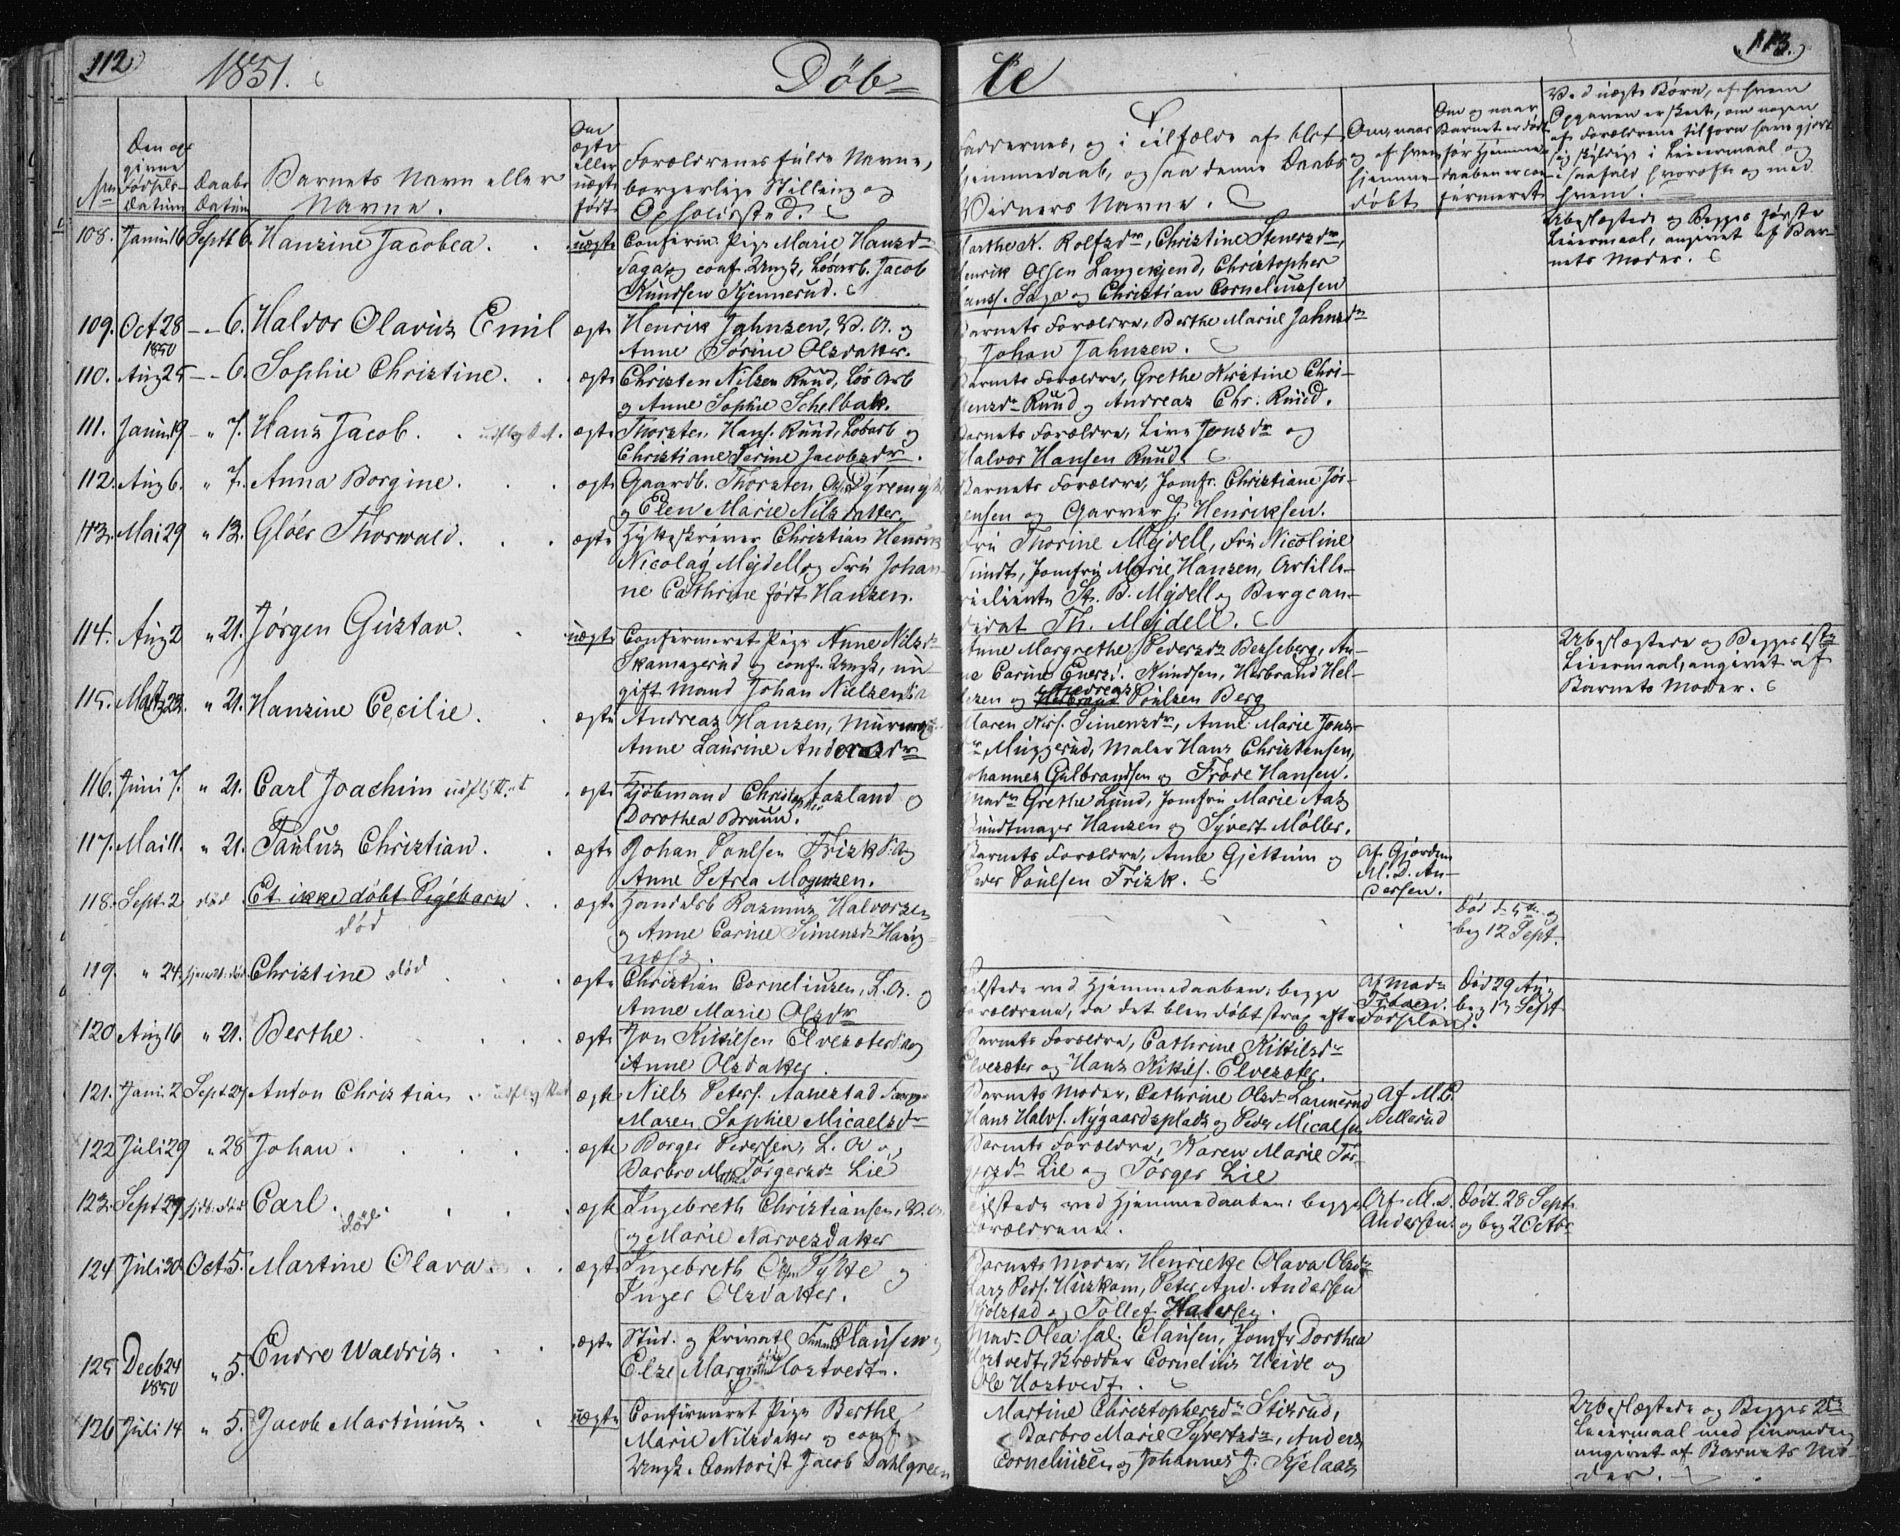 112.
1851.
Döb=
te
113.
No
Den op-
givne
Födsels-
Datum
Daabs
Datum
Barnets Navn eller
Navne.
Om
ægte
eller
uægte
födt
Forældrenes fulde Navne,
borgerlige Stilling og
Opholdssted.
Faddernes, og i Tilfælde af blot
Hjemmedaab, ogsaa denne Daabs
Vidners Navne.
Om, naar
og af hvem
hjemme-
döbt
Om og naar
Barnet er dödt
för Hjemme-
daaben er con-
firmeret
Ved uægte Børn, af hvem
Opgaven er skeet, om nogen
af Forældrene tilforn have gjort
sig skyldige i Leiermaal og
i saafald hvorofte og med
hvem.
108. Januar 16 Septb 6. Hanzine Jacobea. uægte Confirm. Pige Marie Hansdr
Saga og conf. Ungk., Løsarb. Jacob
Knudsen Hjennerud.
Marthe K. Rolfsdr, Christine Stenersdr,
Henrik Olsen Langekjend, Christopher
Hanss. Saga og Christian Corneliussen
Ubeslægtede og Begges første
Leiermaal, angivet af Bar-
nets Moder.
109. Oct 28 1850 - - 6. Halvor Olavius Emil ægte Henrik Jahnsen, B. A. og
Anne Sørine Olsdatter.
Barnets Forældre, Berthe Marie Jahnsdr
Johan Jahnsen.
110. Aug 25 - - 6. Sophie Christine. ægte Christen Nilsen Ruud, Løs Arb
og Anne Sophie Schelbak.
Barnets Forældre, Grethe Kirstine Chri-
stensdr Ruud og Andreas Chr. Ruud.
111. Januar 19 - " 7. Hans Jacob. udflyttet. ægte Thorsten Hans. Ruud, Løsarb og
Christiane Terine Jacobsdr.
Barnets Forældre, Live Jonsdr og
Halvor Hansen Ruud.
112. Aug 6. " 7. Anna Borgine. ægte Gaardb. Thorsten Olsen Dyremyr
og Elen Marie Nilsdatter.
Barnets Forældre, Jomfr. Christiane Jör-
gensen og Garver J. Henriksen.
113. Mai 29 " 13. Gloer Thorwald. ægte Hytteskriver Christian Henrik
Nicolay Mejdell og Fru Johan-
ne Cathrine født Hansen.
Fru Thorine Mejdell, Fru Nicoline
Sundt, Jomfru Marie Hansen, Artille-
rieliunt. St. B. Mejdell og Bergcan-
didat Th. Mejdell.
114. Aug 2 " 21. Jørgen Gustav. uægte Confirmeret Pige Anne Nilsdr
Skamsgerud og conf. Ungk., nu
gift Mand Johan Nielsen
Anne Margrethe Pedersdr Besseberg, An-
ne Carine Eversd. Knudsen, Herbrand Hel-
sen og Andreas Poulsen Berg
Ubeslægtede og Begges 1ste
Leiermaal, angivet af
Barnets Moder.
115. Marts 23. " 21. Hanzine Cecilie. ægte Andreas Hansen, Murer og
Anne Laurine Andersdr
Maren Kirs. Simensdr, Anne Marie Jons-
dr Muggerud, Maler Hans Christensen,
Johannes Gulbrandsen og Frøde Hansen.
116. Juni 7. " 21. Carl Joachim udflyttet ægte Kjøbmand Christopher Aasland og
Dorothea Bruun.
Madm Grethe Lund, Jomfru Marie Aas
Bundtmager Hansen og Syvert Møller.
117. Mai 11. " 21. Paulus Christian. ægte Johan Poulsen Frisk S. A. og
Anne Petrea Mogensen.
Barnets Forældre, Anne Gjellum og
Peder Poulsen Frisk.
Af Gjordm
M. D. An-
dersen.
118. Sept. 2 död Et ikke döbt Pigebarn ægte Handelsb Rasmus Halvorsen
död
og Anne Carine Simensdr Haug-
næss.
Död d. 5te og
beg 12 Sept.
119. " 24. hjemdt. död Christine död ægte Christian Corneliusen, L. A. og
Anne Marie Olsdr
Tilstede ved Hjemmedaaben: begge
Forældrene, da det blev døbt strax efter Fødselen.
Af Madm
Död 29 Aug.
beg 13 Sept
120 Aug 16 " 21. Berthe. ægte Jon Kittilsen Elvesæter S. A og
Anne Olsdatter.
Barnets Forældre, Cathrine Kittilsdr
Elvesæter og Hans Kittils. Elvesæter.
121. Janu. 2 Sept 27 Anton Christian. udflyttet ægte Niels Peters. Aanestad
Maren Sophie Micaelsdr
Barnets Moder, Cathrine Olsdr Laumerud
Hans Halvs. Nygaardsplads og Peder Micalsen
Af M. C.
Nellerud
122 Juli 29 " 28 Johan. ægte Borger Pedersen, L. A og,
Barbro Mathea Torgersdr Lie
Barnets Forældre, Karen Marie Tor-
gersdr Lie og Torger Lie
123. Sept 27 hjdt. död Carl. ægte Ingebreth Christiansen, B. A.
död
og Marie Narvesdatter
Tilstede ved Hjemmedaaben: begge
Forældrene.
Af M. D.
Andersen.
Dödt. 28 Sept.
og beg 2 Octbr
124 Juli 30 Oct 5. Martine Olava ægte Ingebreth Olsen Pytte og
Inger Olsdatter.
Barnets Moder, Henriette Olava Olsdr
Hans Peds. Huskom, Peter And. Andersen
Skolstad og Tollef Halvorsen.
125 Decb 24 1850 " 5. Endre Waldris. ægte Stud. og Privatl Clausen og
Else Margrethe Hostvedt.
Madm Olea sal. Clausen, Jomfr Dorthea
Hostvedt, Skrædder Cornelius Heide og
Ole Hostvedt.
126 Juli 14 " 5. Jacob Martinius uægte Confirmeret Pige Berthe
Marie Nilsdatter og conf
Ungk. Contorist Jacob Dahlgreen
Martine Christophersdr Stisrud,
Barbro Marie Syvertsdr, Anders
Corneliusen og Johannes J. Kjelaas
Ubeslægtede og Begges 2det
Leiermaal med hinanden
angivet af Barnets Mo-
der.